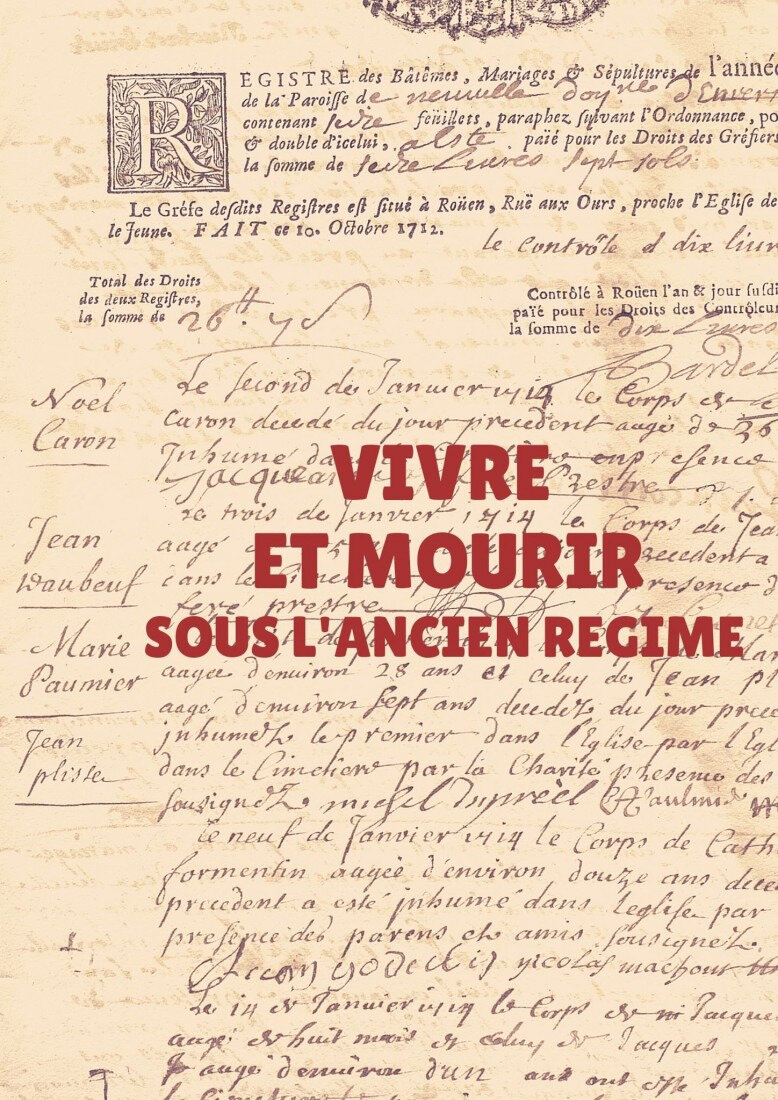 REGISTRE des Bâtêmes, Mariages & Sépultures de l'année
de la Paroisse de neuville doy.né d'Enver
contenant seize feüillets, paraphez suivant l'Ordonnance, po
& double d'icelui, païé pour les Droits des Gréfiers
la somme de seize livres sept sols
Le Gréfe desdits Registres est situé à Roüen, Ruë aux Ours, proche l'Eglise de
le Jeune. FAIT ce 10. Octobre 1712.
le controlle d dix liur
Total des Droits
des deux Registres,
la somme de 26
Contrôlé à Roüen l'an & jour susdi
païé pour les Droits des Contrôleur
la somme de dix livres
Bardel
Noel
Caron
Le second de Januier 1714 le Corps de
caron decedé du jour precedent aagé de 26
Inhumé presence
VIVRE
Jacque
le trois de Januier 1714 le Corps de Jea
Jean
Daubeuf
ET MOURIR
aagé
dans le Cimetiere presence d
prestre
SOUS L'ANCIEN REGIME
Marie
Paumier
aagée d'enuiron 28 ans et celuy de Jean pl
aagé d'enuiron sept ans decedez du jour prece
Jean
plisse
jnhumez le premier dans l'Eglise par l'Egl
dans le Cimetiere par la Charité presence des
sousignez michel dupréel
le neuf de Januier 1714 le Corps de Cath
formentin aagée d'enuiron douze ans dece
precedent a esté jnhumé dans leglise par
presence des parens et amis sousignez
nicolas machout
Le 14 de Januier 1714 le Corps de Jacque
aagé de huit mois et celuy de Jacques
aagé denuiron d'un ans ont esté Inhu
le Cimetiere